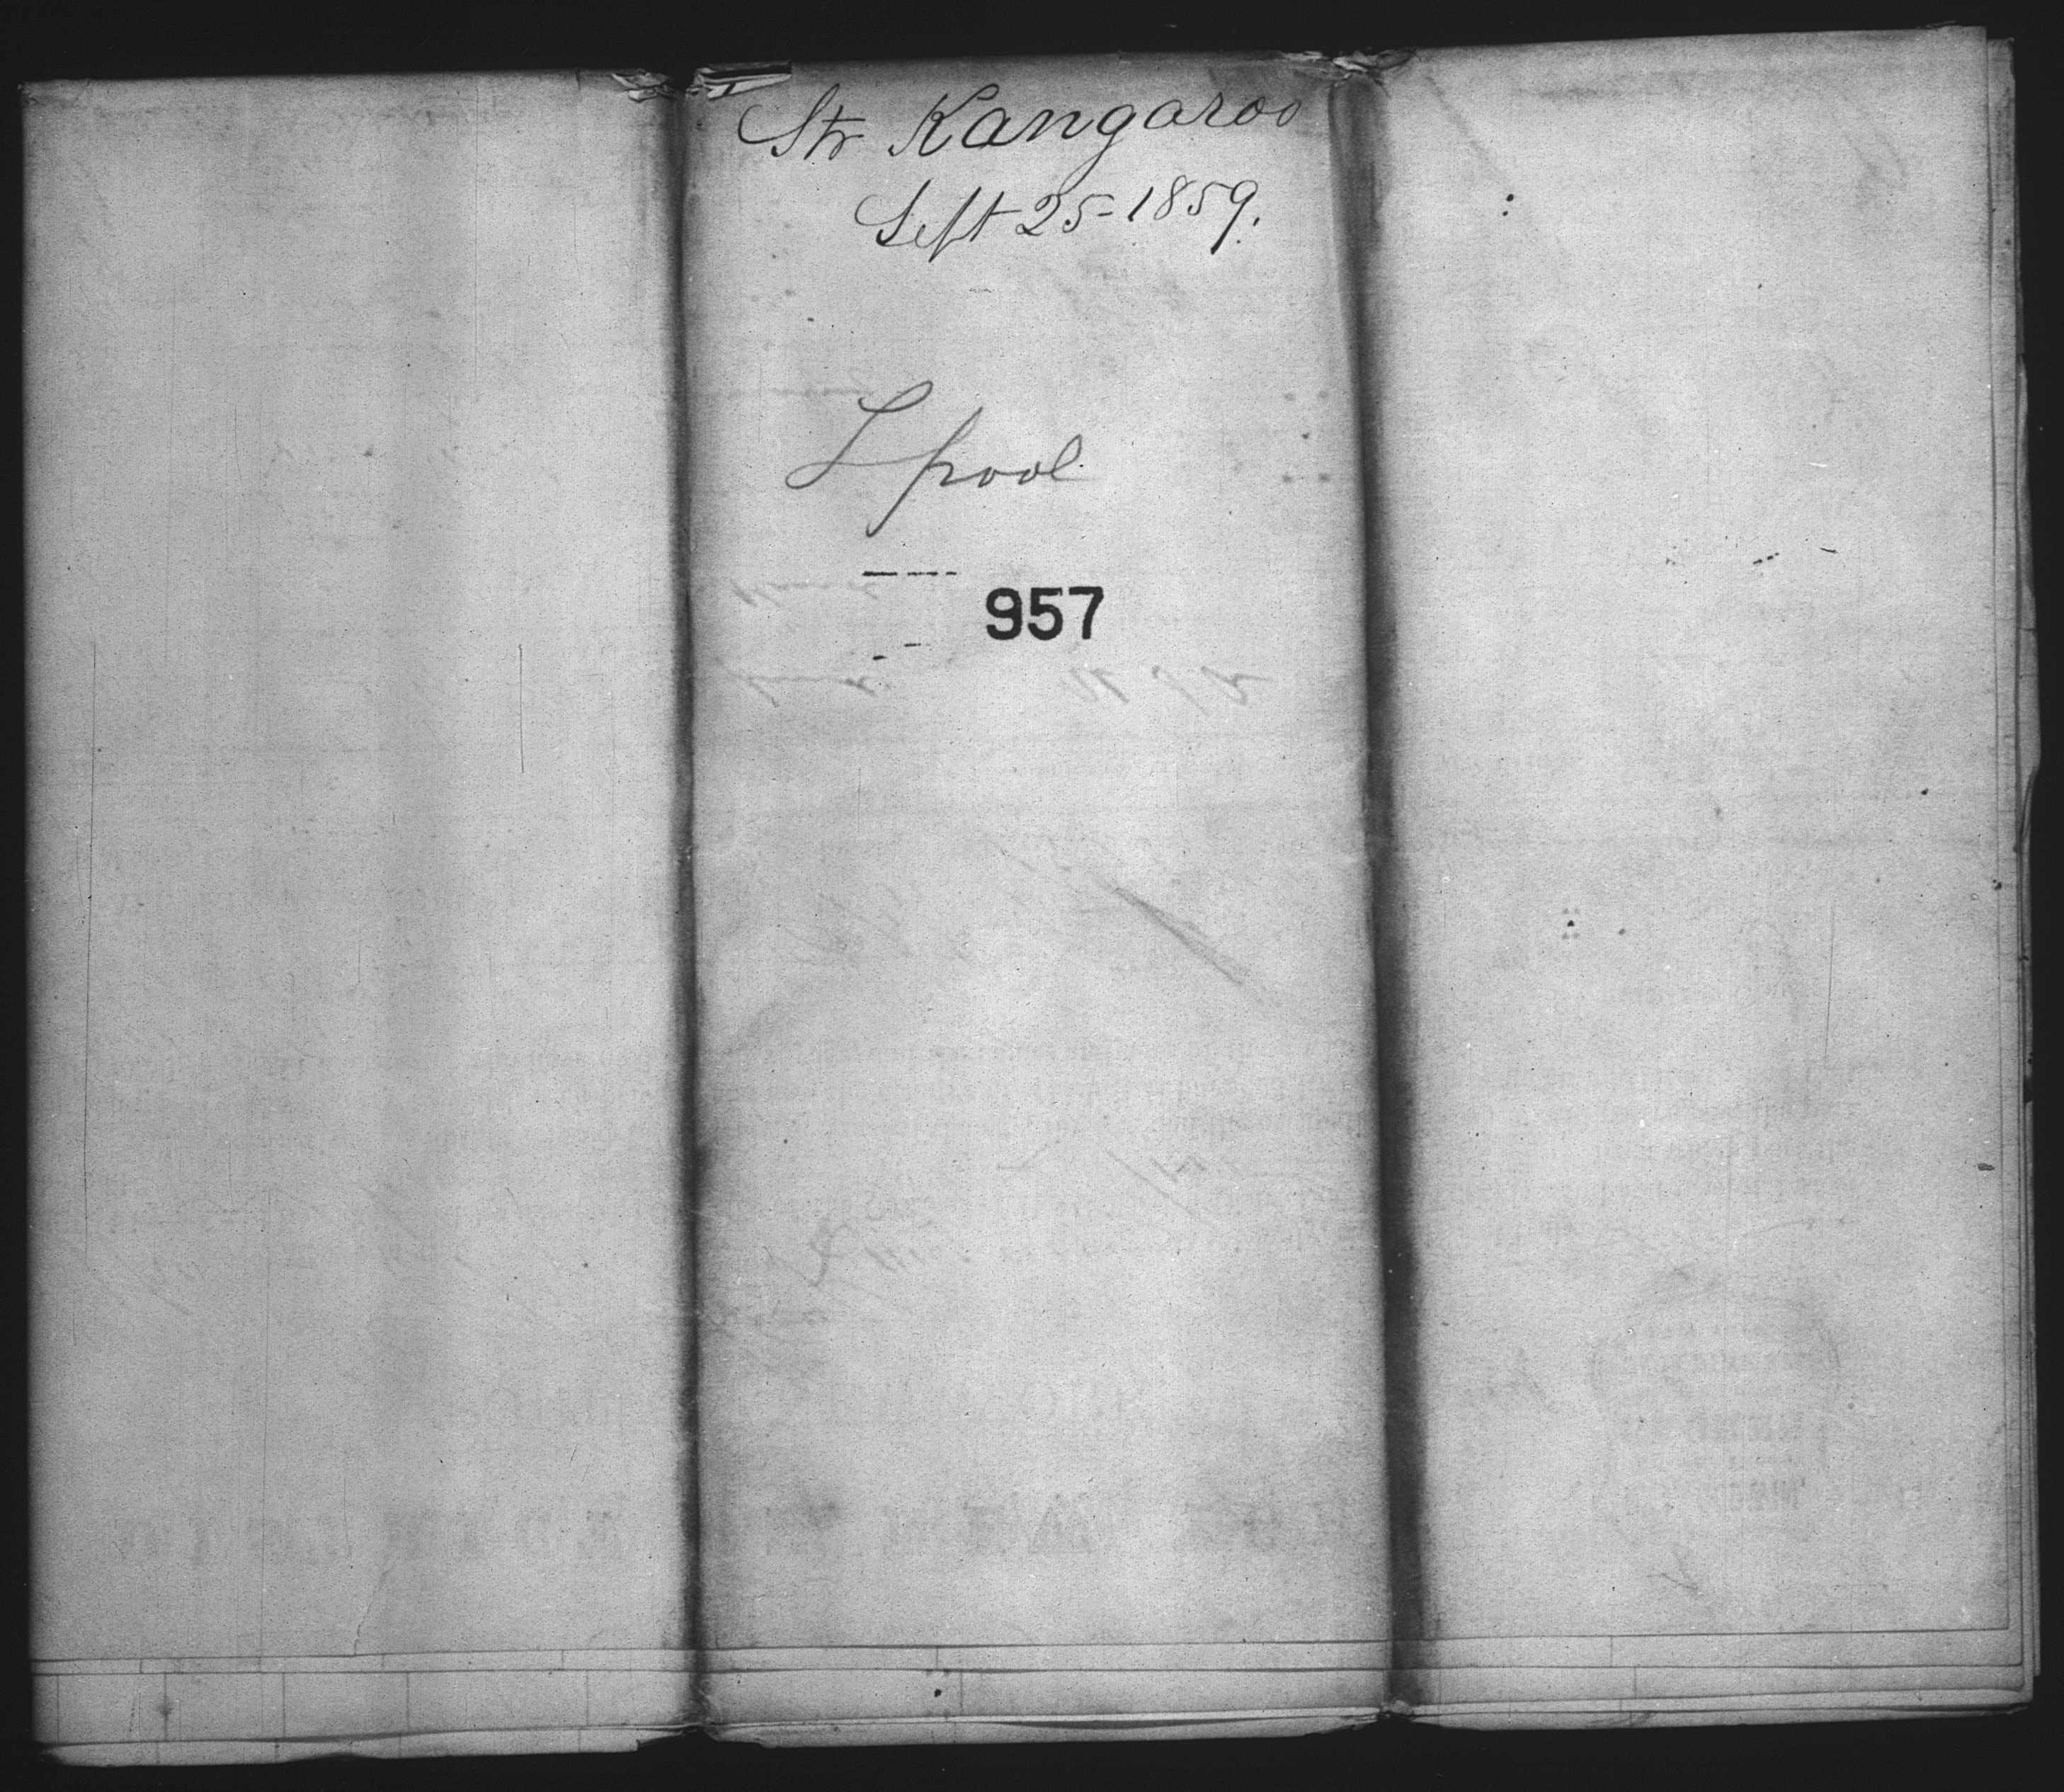 Str Kangaroo
Sept 25-1859.
L pool
957